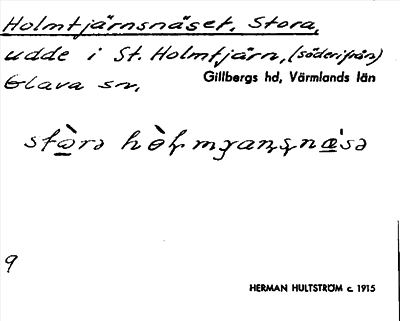 Holmtjärnsnäset, Stora,
udde i St. Holmtjärn, (söderifrån)
Glava sn,
Gillbergs hd, Värmlands län
9
HERMAN HULTSTRÖM c. 1915